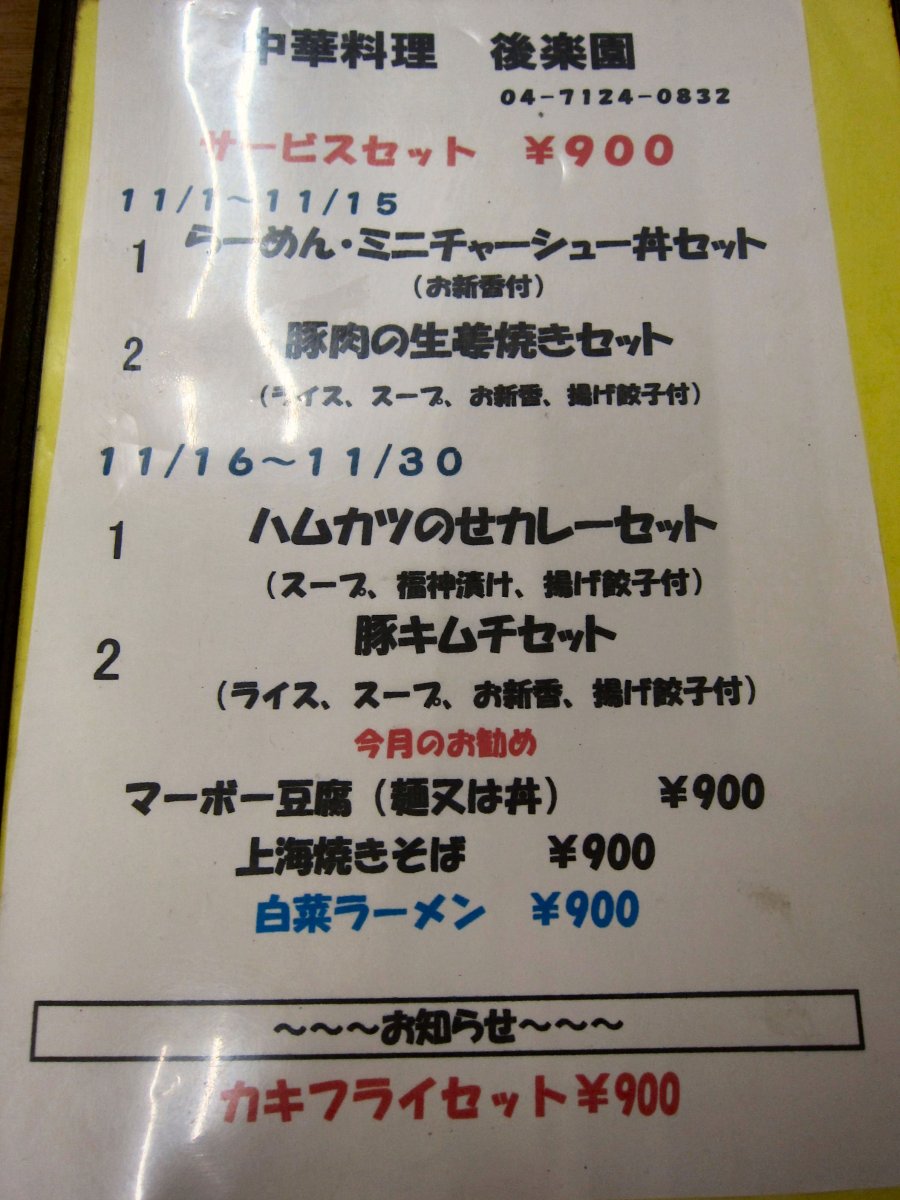 中華料理　後楽園
04-7124-0832
サービスセット　￥900
11/1～11/15
1　らーめん・ミニチャーシュー丼セット
（お新香付）
2　豚肉の生姜焼きセット
（ライス、スープ、お新香、揚げ餃子付）
11/16～11/30
1　ハムカツのせカレーセット
（スープ、福神漬け、揚げ餃子付）
2　豚キムチセット
（ライス、スープ、お新香、揚げ餃子付）
今月のお勧め
マーボー豆腐（麺又は丼）　￥900
上海焼きそば　￥900
白菜ラーメン　￥900
～～～お知らせ～～～
カキフライセット￥900